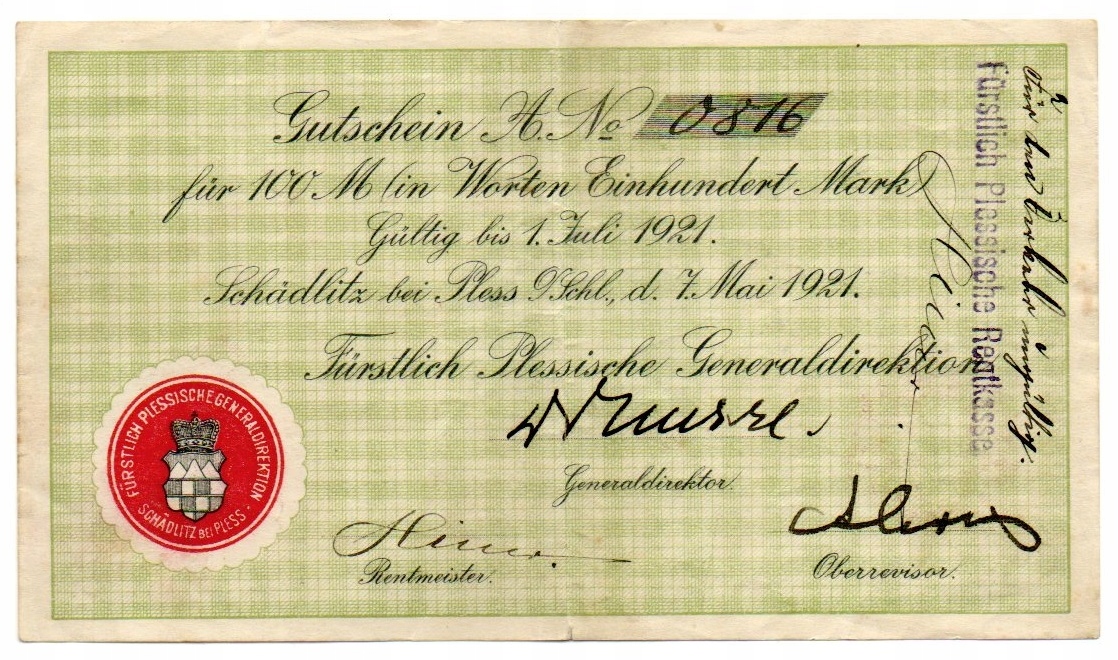 Gutschein A. No 0816
für 100 M (in Worten Einhundert Mark)
Gültig bis 1. Juli 1921.
Schädlitz bei Pless O/Schl., d. 7. Mai 1921.
Fürstlich Plessische Generaldirektion
Generaldirektor.
Rentmeister.
Oberrevisor.
FÜRSTLICH PLESSISCHE GENERALDIREKTION
SCHÄDLITZ BEI PLESS
Fürstlich Plessische Rentkasse
Für den Verkehr ungültig.